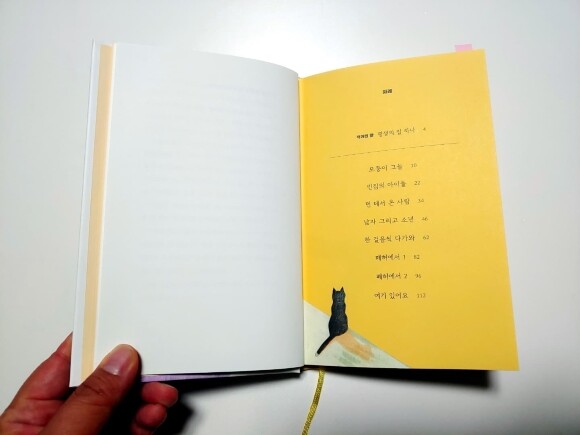 차례
작가의 말 4
모퉁이 그늘 10
빈집의 아이들 22
먼 데서 온 사람
남자 그리고 소년 46
한 걸음씩 다가와 62
폐허에서 1 82
폐허에서 2 96
여기 있어요 112